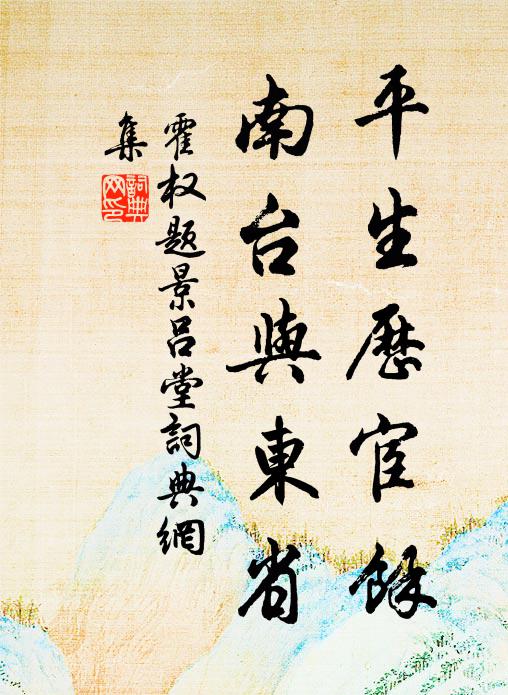 平生歷宦餘
南台與東省
霍权題景呂堂詞典網
集
詞典
网印